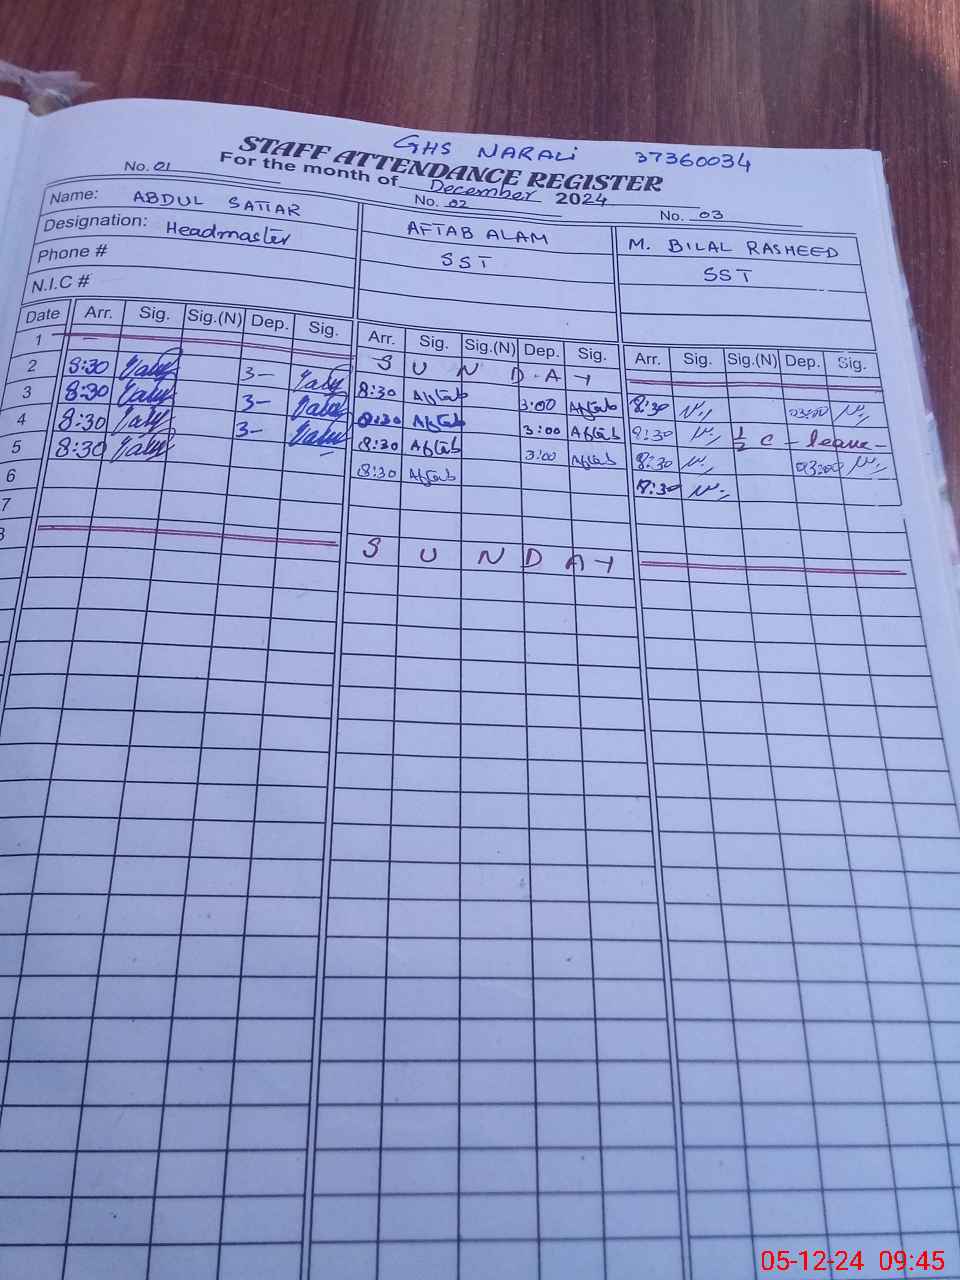 GHS NARALI 37360034
STAFF ATTENDANCE REGISTER
For the month of December 2024
No. 01 No. 02 No. 03
Name: ABDUL SATTAR AFTAB ALAM M. BILAL RASHEED
Designation: Headmaster SST SST
Phone #
N.I.C #
Date Arr. Sig. Sig.(N) Dep. Sig. Arr. Sig. Sig.(N) Dep. Sig. Arr. Sig. Sig.(N) Dep. Sig.
1 S U N D A Y
2 8:30 3- 8:30 Aftab 3:00 Aftab 8:30 03:00
3 8:30 3- 8:30 Aftab 3:00 Aftab 8:30 1/2 C - leave -
4 8:30 3- 8:30 Aftab 3:00 Aftab 8:30 03:00
5 8:30 8:30 Aftab 8:30
6
7
8 S U N D A Y
05-12-24 09:45